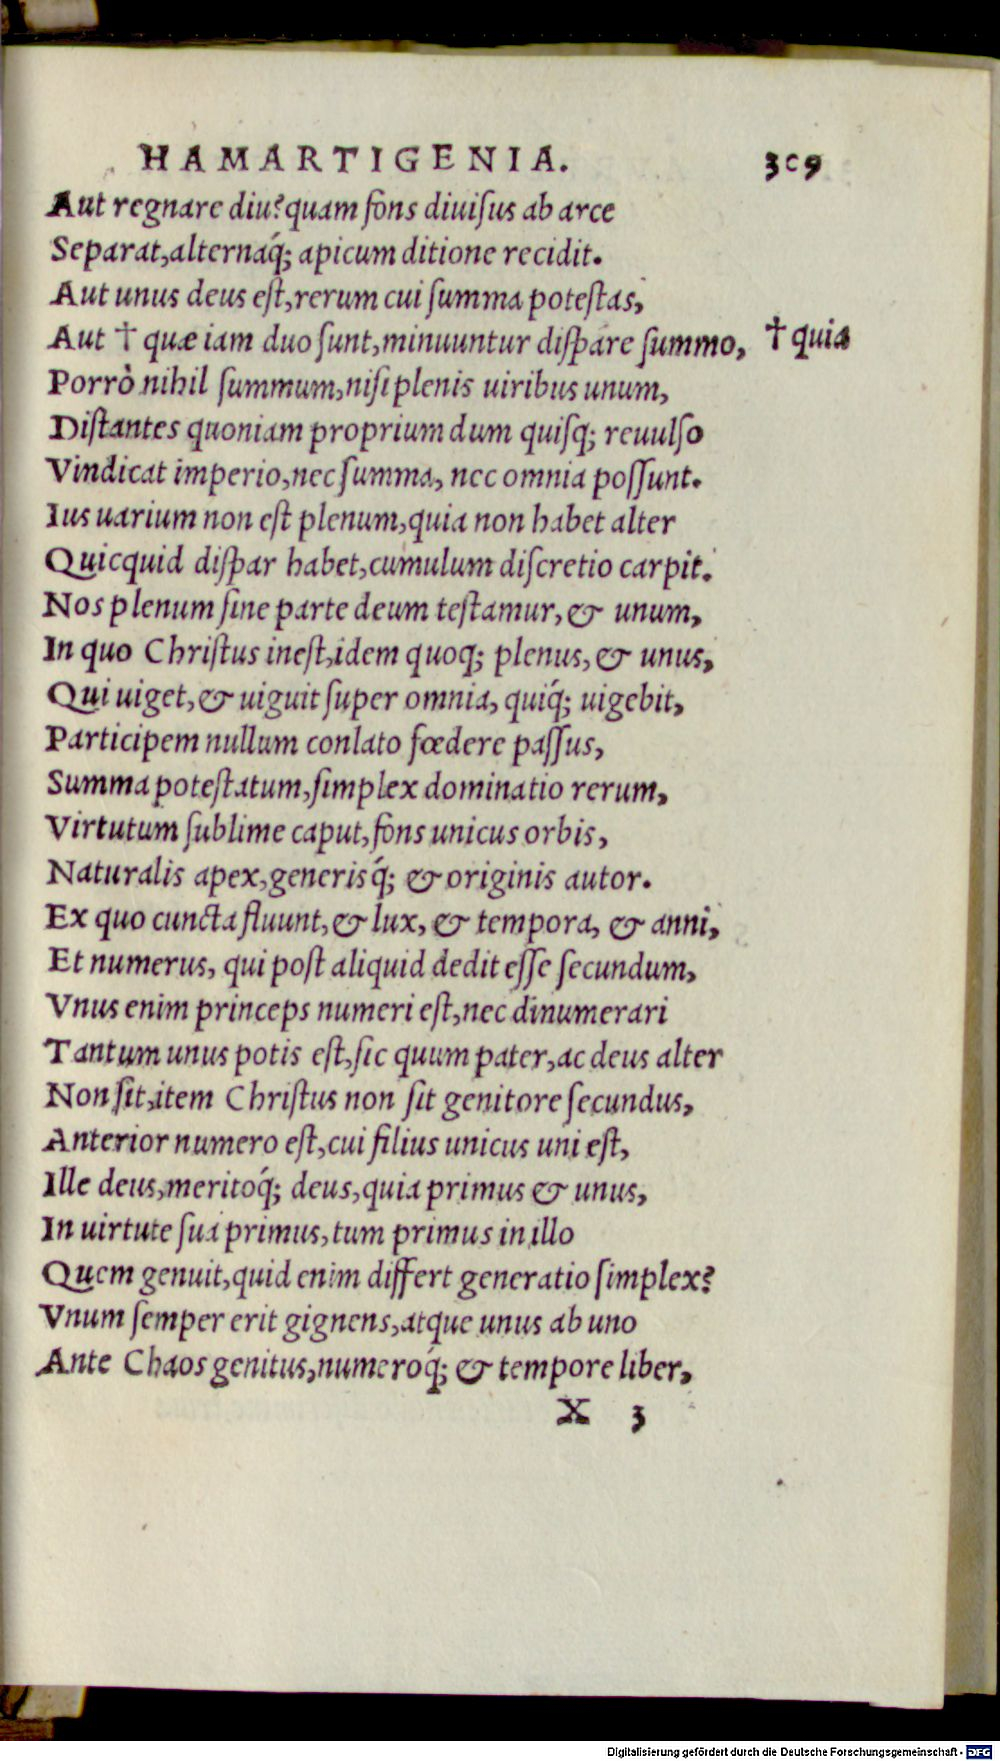 HAMARTIGENIA. 309
Aut regnare diu? quam fons diuiſus ab arce
Separat, alternaq́; apicum ditione recidit.
Aut unus deus eſt, rerum cui ſumma poteſtas,
Aut † quæ iam duo ſunt, minuuntur diſpare ſummo, † quia
Porrò nihil ſummum, niſi plenis uiribus unum,
Diſtantes quoniam proprium dum quiſq; reuulſo
Vindicat imperio, nec ſumma, nec omnia poſſunt.
Ius uarium non eſt plenum, quia non habet alter
Quicquid diſpar habet, cumulum diſcretio carpit.
Nos plenum ſine parte deum teſtamur, & unum,
In quo Chriſtus ineſt, idem quoq; plenus, & unus,
Qui uiget, & uiguit ſuper omnia, quiq́; uigebit,
Participem nullum conlato fœdere paſſus,
Summa poteſtatum, ſimplex dominatio rerum,
Virtutum ſublime caput, fons unicus orbis,
Naturalis apex, generisq́; & originis autor.
Ex quo cuncta fluunt, & lux, & tempora, & anni,
Et numerus, qui poſt aliquid dedit eſſe ſecundum,
Vnus enim princeps numeri eſt, nec dinumerari
Tantum unus potis eſt, ſic quum pater, ac deus alter
Non ſit, item Chriſtus non ſit genitore ſecundus,
Anterior numero eſt, cui filius unicus uni eſt,
Ille deus, meritoq́; deus, quia primus & unus,
In uirtute ſua primus, tum primus in illo
Quem genuit, quid enim differt generatio ſimplex?
Vnum ſemper erit gignens, atque unus ab uno
Ante Chaos genitus, numeroq́; & tempore liber,
X 3
Digitalisierung gefördert durch die Deutsche Forschungsgemeinschaft - DFG